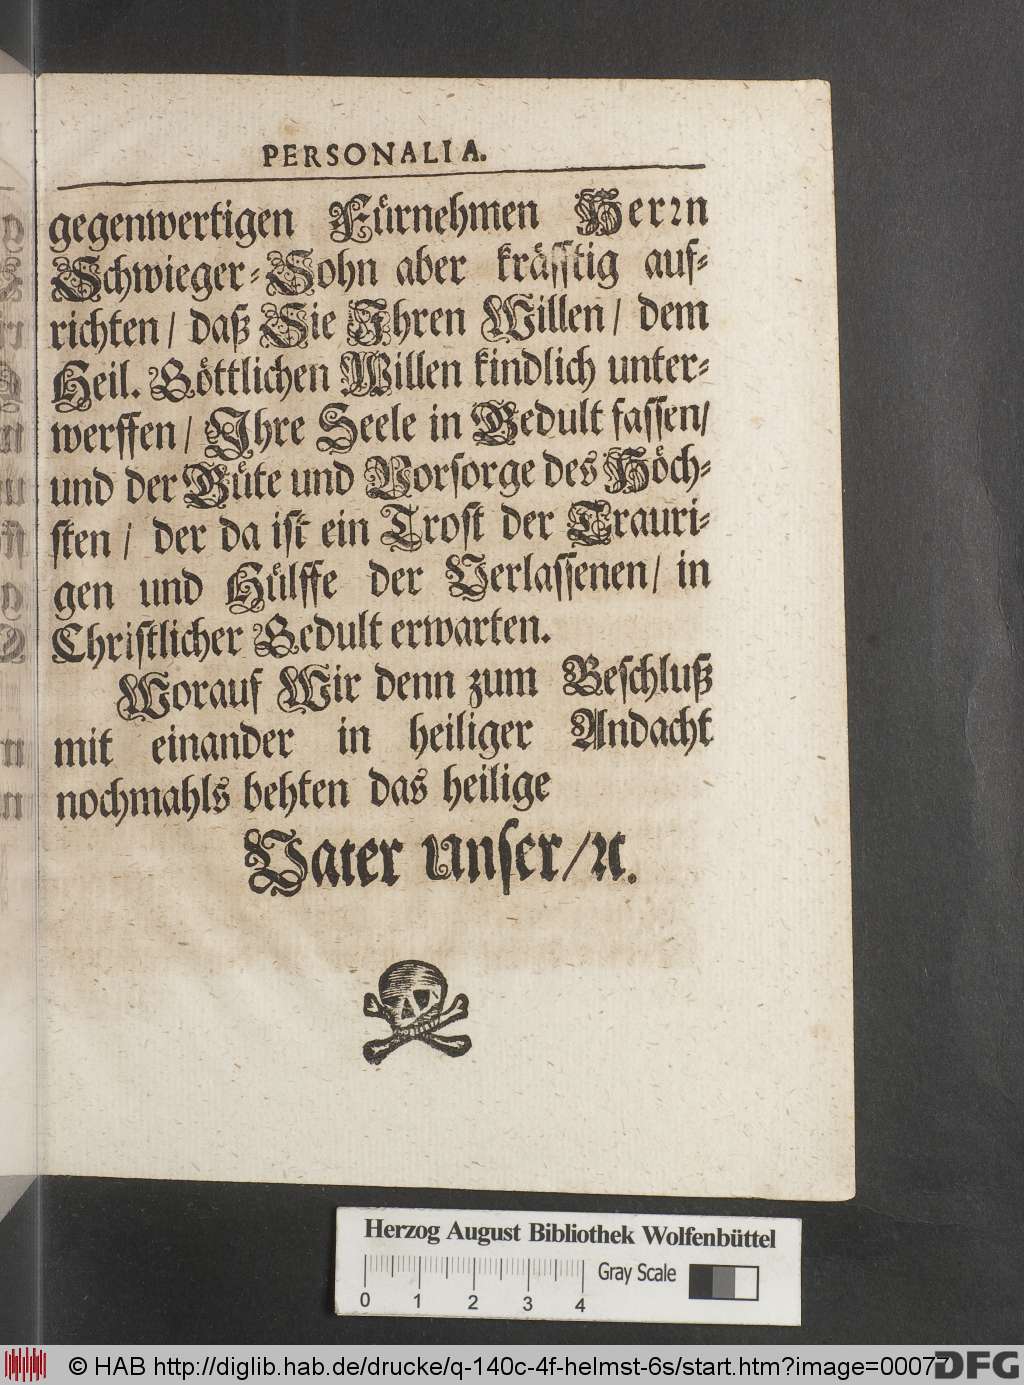 PERSONALIA.
gegenwertigen Fürnehmen Herrn
Schwieger-Sohn aber kräfftig auf-
richten / daß Sie Ihren Willen / dem
Heil. Göttlichen Willen kindlich unter-
werffen / Ihre Seele in Gedult fassen /
und der Güte und Vorsorge des Höch-
sten / der da ist ein Trost der Trauri-
gen und Hülffe der Verlassenen / in
Christlicher Gedult erwarten.
Worauf Wir denn zum Beschluß
mit einander in heiliger Andacht
nochmahls behten das heilige
Vater Unser / ꝛc.
Herzog August Bibliothek Wolfenbüttel
Gray Scale
0 1 2 3 4
© HAB http://diglib.hab.de/drucke/q-140c-4f-helmst-6s/start.htm?image=00077
DFG